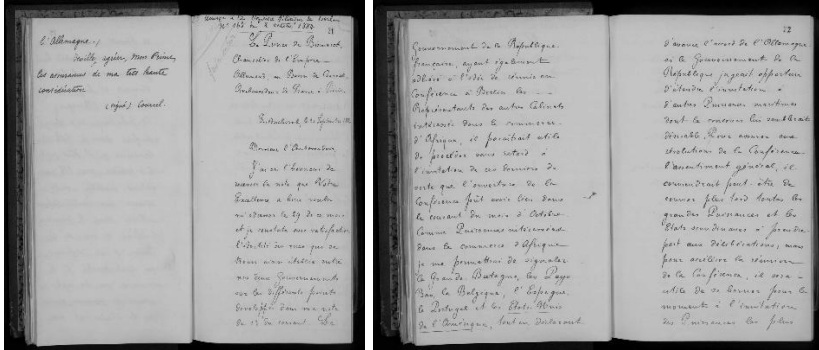 l'Allemagne.
Veuillez agréer, Mon Prince,
les assurances de ma très haute
considération.
(signé) Courcel.
Annexe à la
21
Le Prince de Bismarck,
Chancelier de l'Empire
Allemand, au Baron de Courcel,
Ambassadeur de France à
Friedrichsruh, le 30 Septembre
Monsieur l'Ambassadeur,
J'ai eu l'honneur de
recevoir la note que Votre
Excellence a bien voulu
m'adresser le 29 de ce mois
et je constate avec satisfaction
l'identité de vues qui se
trouve ainsi établie entre
nos deux Gouvernements
sur les différents points
développés dans ma note
du 13 du courant. Le
Gouvernement de la République
française, ayant également
adhéré à l'idée de réunir en
Conférence à Berlin les
Représentants des autres Cabinets
intéressés dans le commerce
d'Afrique, il paraîtrait utile
de procéder sans retard à
l'invitation de ces derniers de
sorte que l'ouverture de la
Conférence pût avoir lieu dans
le courant du mois d'Octobre.
Comme Puissances intéressées
dans le commerce d'Afrique
je me permettrai de signaler
la Grande Bretagne, les Pays
Bas, la Belgique, l'Espagne,
le Portugal et les Etats Unis
de l'Amérique, tout en déclarant
22
d'avance l'accord de l'Allemagne
si le Gouvernement de la
République jugeait opportun
d'étendre l'invitation à
d'autres Puissances maritimes
dont le concours lui semblerait
désirable. Pour assurer aux
résolutions de la Conférence
l'assentiment général, il
conviendrait peut-être de
convier plus tard toutes les
grandes Puissances et les
Etats scandinaves à prendre
part aux délibérations, mais
pour accélérer la réunion
de la Conférence, il sera
utile de se borner pour le
moment à l'invitation
des Puissances les plus